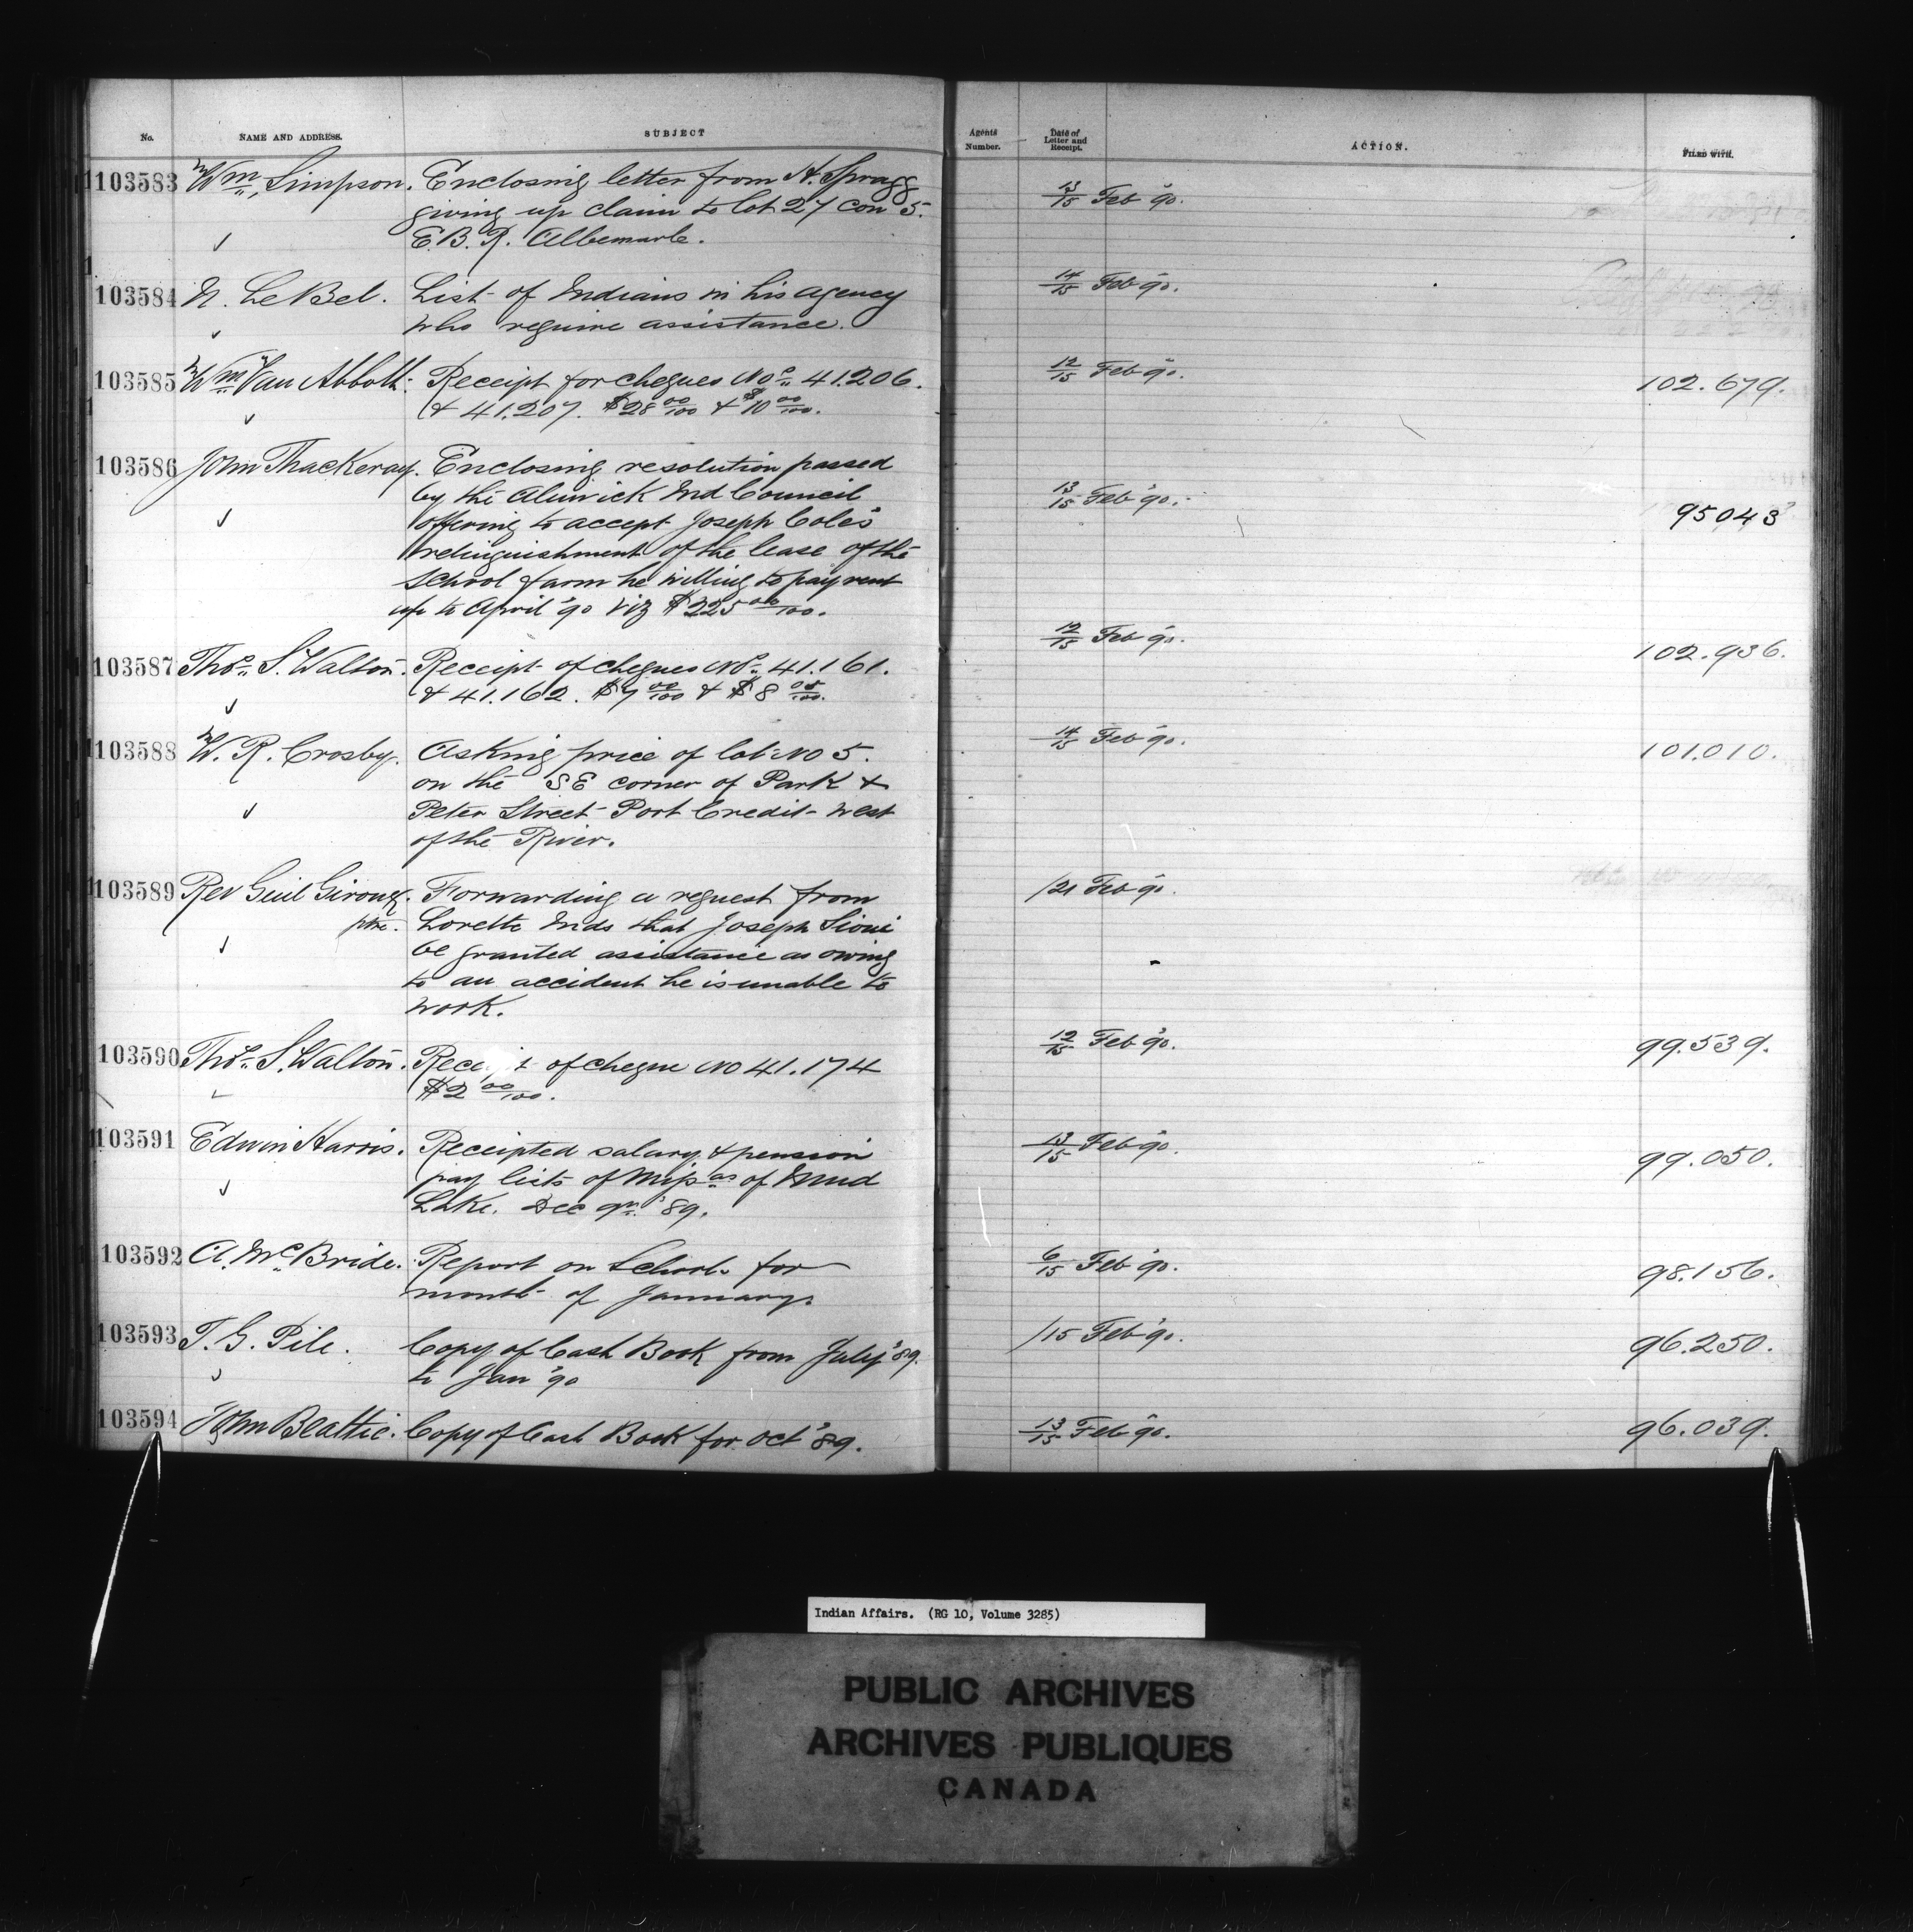 No. NAME AND ADDRESS. SUBJECT Agents Number. Date of Letter and Receipt. ACTION. FILED WITH.
103583 Wm Simpson. Enclosing letter from H. Spragg 13/15 Feb '90.
giving up claim to lot 27 con 5.
E.B.R. Albemarle.
103584 N. LeBel. List of Indians in his agency 14/15 Feb '90.
who require assistance.
103585 Wm Van Abbott. Receipt for cheques Nos 41.206. 12/15 Feb '90. 102.679.
& 41.207. $28 00/100 & $10 00/100.
103586 John Thackeray. Enclosing resolution passed
by the Alnwick Ind Council 13/15 Feb '90. 95043
offering to accept Joseph Cole's
relinquishment of the lease of the
School farm he willing to pay rent
up to April '90 viz $225 00/100.
103587 Thos. S. Walton. Receipt of cheques Nos 41.161. 12/15 Feb '90. 102.936.
& 41.162. $7 00/100 & $8 00/100.
103588 W. R. Crosby. Asking price of lot No 5. 14/15 Feb '90. 101.010.
on the SE corner of Park &
Peter Street Port Credit west
of the River.
103589 Rev Guil Giroux. Forwarding a request from /21 Feb '90.
ptre. Lorette Inds that Joseph Sioui
be granted assistance as owing
to an accident he is unable to
work.
103590 Thos. S. Walton. Receipt of cheque No 41.174 12/15 Feb '90. 99.539.
$2 00/100.
103591 Edwin Harris. Receipted salary & pension 13/15 Feb '90. 99.050.
pay lists of Missas of Mud
Lake. Dec qr. '89.
103592 A. McBride. Report on Schools for 6/15 Feb '90. 98.156.
month of January.
103593 T. G. Pile. Copy of Cash Book from July '89. /15 Feb '90. 96.250.
to Jan '90
103594 John Beattie. Copy of Cash Book for Oct '89. 13/15 Feb '90. 96.039.
Indian Affairs. (RG 10, Volume 3285)
PUBLIC ARCHIVES
ARCHIVES PUBLIQUES
CANADA